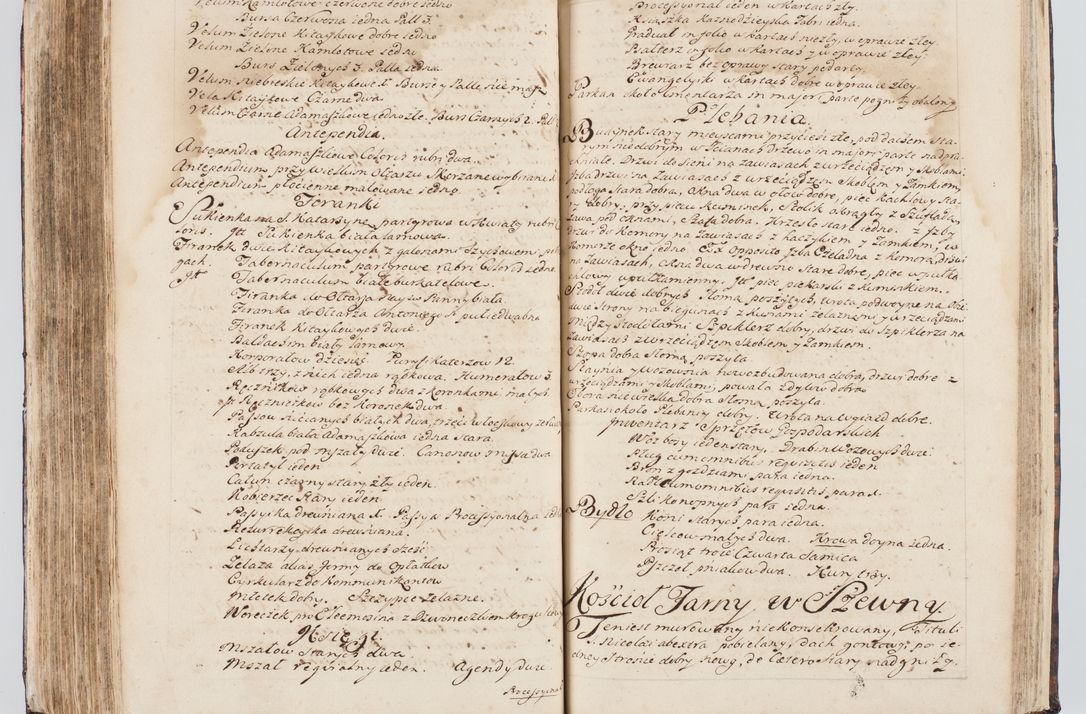 Velum Kamlotowe czerwone dobre jedno
Bursa Czerwona jedna Pall 3.
Velum Zielone Kitaykowe dobre jedno
Velum Zielone Kamlotowe jedno
Burs Zielonych 3. Palla jedna
Velum niebieskie Kitaykowe Bursę y Pallę nie mają
Vela Kitaykowe Czarne dwa
Velum Czarne Adamaszkowe jedno złe. Burs Czarnych 2. Pall
Antependia.
Antependia Adamaszkowe Coloris rubri dwa.
Antependium przy wielkim Ołtarzu Skorzane wybijane
Antependium płocienne malowane jedno.
Firanki
Sukienka na S. Katarzynę partyrowa w Kwiaty rubri
loris. Jtt Sukienka biała lamowa.
Firanek dwie Kitaykowych z galonem Szychowem po
gach. Tabernaculum partyrowe rubri Coloris jedno
Jtt Tabernaculum białe burkatelowe.
Firanka do Ołtarza Nayśw: Panny biała
Firanka do Ołtarza Antoniego S. pułjedwabna
Firanek Kitaykowych dwie.
Baldachim biały lamowy
Korporałow dziesięć. Puryfikaterzow 12.
Alb trzy, z nich jedna rąbkowa. Humerałow 3.
Ręcznikow rąbkowych dwa z Koronkami, małych
Ręczniczkow bez Koronek dwa
Passow nicianych białych dwa, trzeci włoczkowy zielony
Kabzula biała Adamaszkowa jedna stara.
Poduszek pod mszały dwie. Canonow missa dwa
Portatyl jeden
Całun czarny stary zły jeden.
Kobierzec stary jeden.
Passyika drewniana 1. Passya Processyonalna jedna
Rezurrekcyika drewniana.
Lichtarzy drewnianych sześć
Żelaza alias formy do Opłatkow
Cyrkularz do Kommunikantow
Młotek dobry. Szczypce żelazne.
Woreczek pro Eleemosina z Dzwoneczkiem
Księgi
Mszałow starych dwa.
Mszał regiralny jeden. Agendy dwie.
Processyonał
Processyonał jeden w Kartach zły.
Książka Kaznodzieyska Fabri jedna.
Graduał in folio w Kartach niezły, w oprawie złey.
Psałterz in folio w Kartach y w oprawie złey.
Brewiarz bez oprawy stary podarty
Ewangelyiki w Kartach dobre w oprawie złey.
Parkan około Cmentarza in majori parte pogniły obalony
Plebania.
Budynek stary mieyscami przyciesi złe, pod dachem sta-
rym niedobrym w Scianach drzewo in majori parte nadpru-
chniałe. Drzwi do Sieni na zawiasach z wrzeciądzem y Skoblami
Izba drzwi na zawiasach z wrzeciądzem Skoblem y Zamkiem,
podłoga stara dobra, Okna dwa w ołow dobre, piec kachlowy sta-
ry dobry. przy piecu Kuminek, Stolik okrągły z Szufladą,
Ława pod Oknami, Szafa dobra. Krzesło stare jedno. z Izby
drzwi do Komory na zawiasach z haczykiem y Zamkiem, w
Komorze okno jedno. Ex Opposito Izba Czeladna z Komorą, drzwi
na zawiasach, Okna dwa w drewno stare dobre, piec w pułka
chlowy w pułkamienny. Jtt piec piekarski z Kuminkiem.
Stodoł dwie dobrych Słomą poszytych, wrota podwoyne na obie
dwie strony na biegunach z kunami żelaznymi y wrzeciądzami
między Stodołami Szpiklerz dobry, drzwi do Szpiklerza na
zawiasach z wrzeciądzem Skoblem y Zamkiem.
Szopa dobra Słomą poszyta
Staynia y wozownia nowozbudowana dobra, drzwi dobre z
wrzeciądzami y Skoblami, powała z dylow dobra
Obora niewielka dobra Słomą poszyta.
Parkan około Plebanij dobry. Wrota na wyjazd dobre.
Inwentarz Sprzętow Gospodarskich
Woz bosy jeden stary, Drabin Wozowych dwie.
Pług cum omnibus requisitis jeden
Bron z goździami para jedna.
Radł cum omnibus requisitis para 1.
Szli konopnych para jedna.
Bydło Koni starych para jedna.
Cięlcow małych dwa. Krowa doyna jedna.
Prosiąt troie Czwarta Samica
Pszczoł pniakow dwa. Kur trzy.
Kościoł Farny w Szewny.
Ten iest murowany niekonsekrowany, Tituli
S. Nicolai ab extra pobielany, dach gontowy po je-
dney stronie dobry nowy, de caetero stary nadgniły.